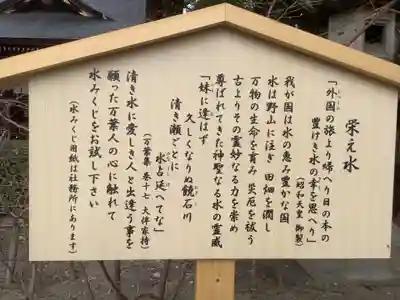 栄え水
「外国の旅より帰へり日の本の
豊けき水の幸を思へり」
（昭和天皇 御製）
我が国は水の恵み豊かな国
水は野山に注ぎ 田畑を潤し
万物の生命を育み 災厄を祓う
古よりその霊妙なる力を崇め
尊ばれてきた神聖なる水の霊威
「妹に逢はず
久しくなりぬ饒石川
清き瀬ごとに
水占延へてな」
（万葉集 巻十七 大伴家持）
清き水に愛しき人と出逢う事を
願った万葉人の心に触れて
水みくじをお試し下さい
（水みくじ用紙は社務所にあります）